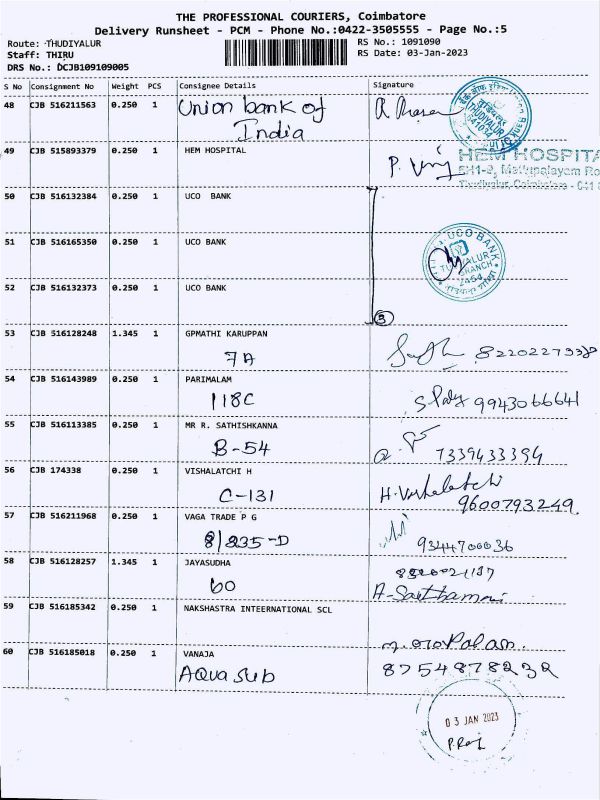 THE PROFESSIONAL COURIERS, Coimbatore
Delivery Runsheet - PCM - Phone No.:0422-3505555 - Page No.:5
Route: THUDIYALUR
RS No.: 1091090
Staff: THIRU
RS Date: 03-Jan-2023
DRS No.: DCJB109109005
S No Consignment No Weight PCS Consignee Details Signature
48 CJB 516211563 0.250 1 Union bank of
India
THUDIYALUR
641034
49 CJB 515893379 0.250 1 HEM HOSPITAL
HEM HOSPITA
Mettupalayam Ro
Thudiyalur, Coimbatore - 641
50 CJB 516132384 0.250 1 UCO BANK
51 CJB 516165350 0.250 1 UCO BANK
UCO BANK
THUDIYALUR
BRANCH
2464
52 CJB 516132373 0.250 1 UCO BANK
3
53 CJB 516128248 1.345 1 GPMATHI KARUPPAN
7A
54 CJB 516143989 0.250 1 PARIMALAM
118C 9943066641
55 CJB 516113385 0.250 1 MR R. SATHISHKANNA
B-54 7339433394
56 CJB 174338 0.250 1 VISHALATCHI H
C-131 H. Vishalatchi
9600793249
57 CJB 516211968 0.250 1 VAGA TRADE P G
8/235-D 9344700036
58 CJB 516128257 1.345 1 JAYASUDHA
60
59 CJB 516185342 0.250 1 NAKSHASTRA INTEERNATIONAL SCL
60 CJB 516185018 0.250 1 VANAJA
Aqua sub 8754878232
03 JAN 2023
P.Raj